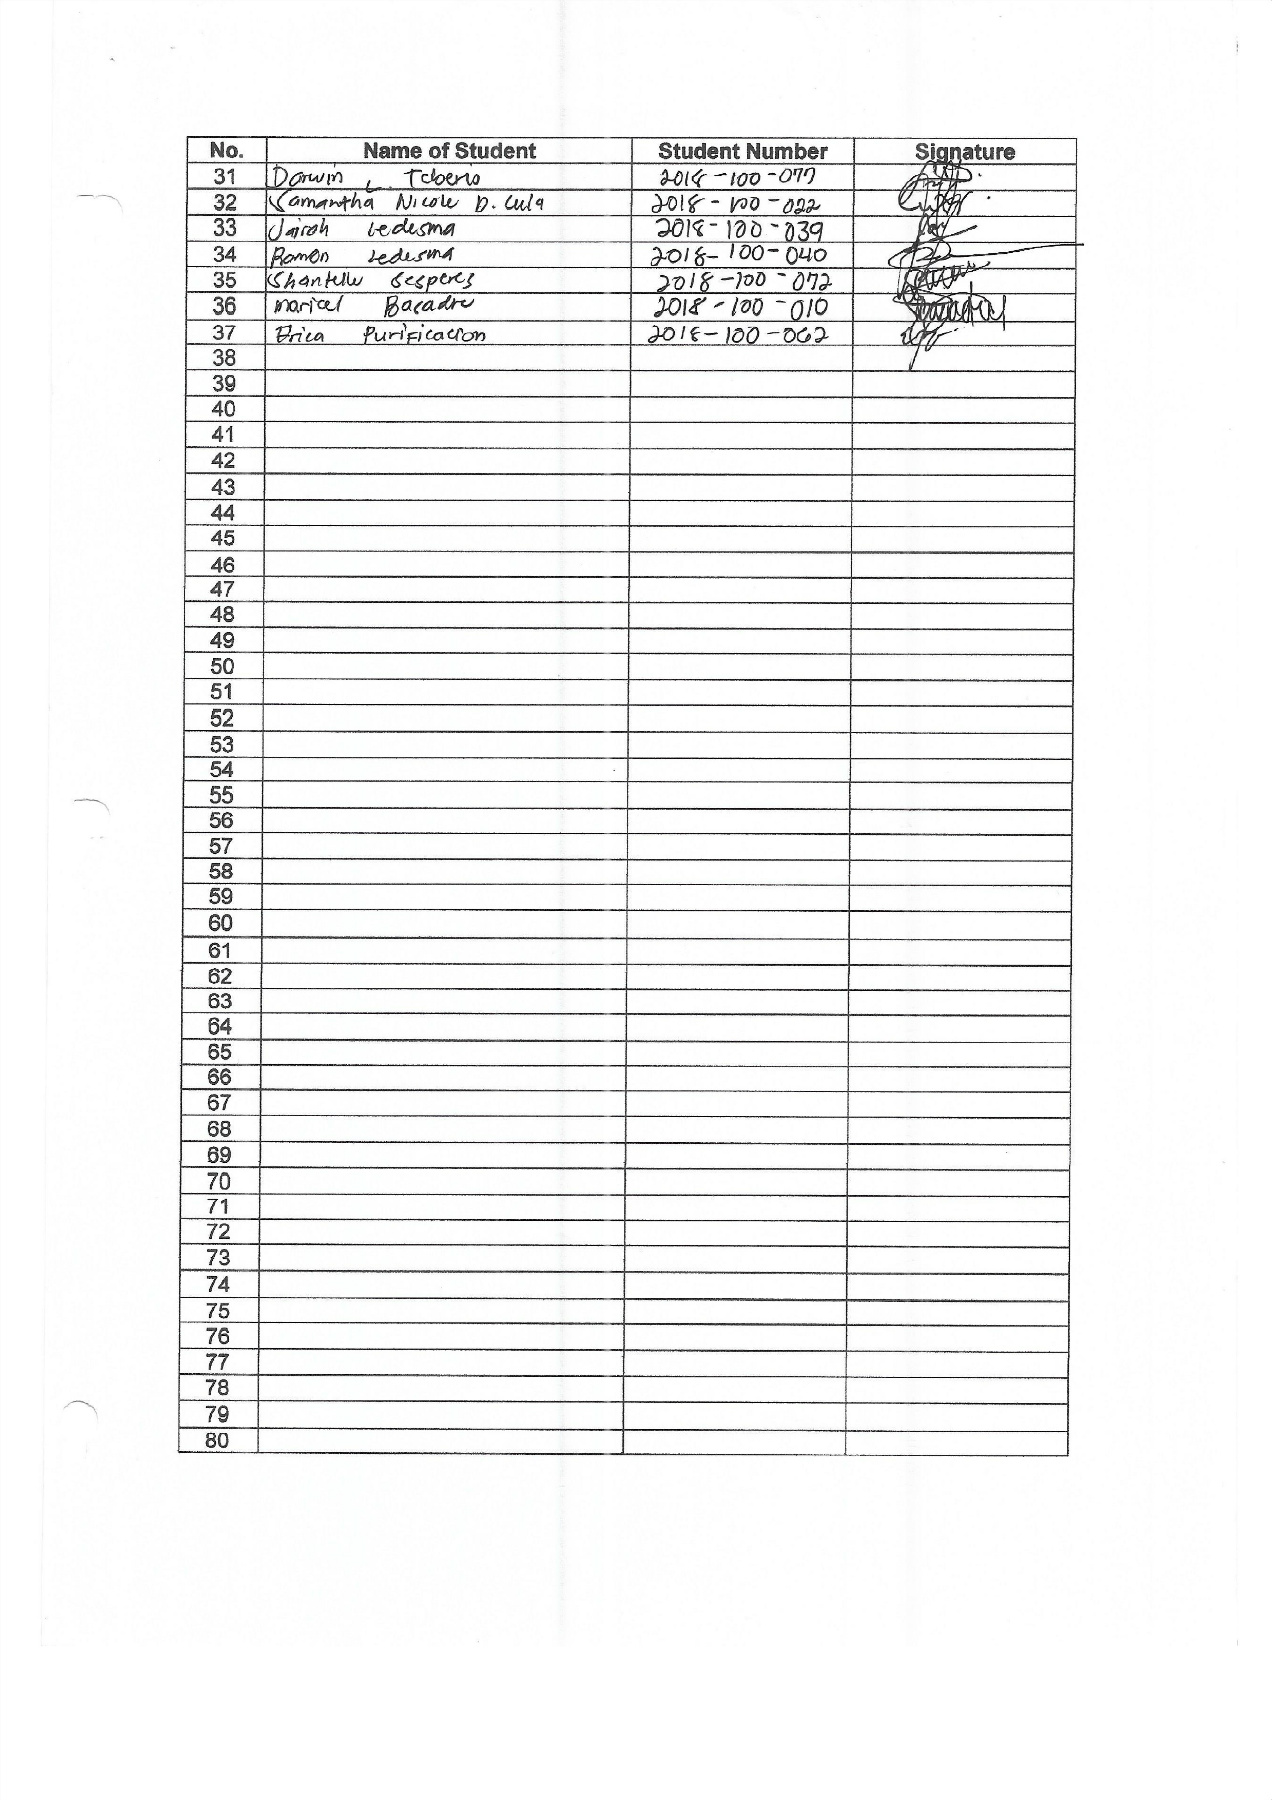 No. Name of Student Student Number Signature
31 Darwin L. Taberio 2018-100-077
32 Samantha Nicole D. Cula 2018-100-022
33 Jairah Ledesma 2018-100-039
34 Ramon Ledesma 2018-100-040
35 Shantelle 2018-100-072
36 Maricel Bacadre 2018-100-010
37 Erica Purificacion 2018-100-062
38
39
40
41
42
43
44
45
46
47
48
49
50
51
52
53
54
55
56
57
58
59
60
61
62
63
64
65
66
67
68
69
70
71
72
73
74
75
76
77
78
79
80